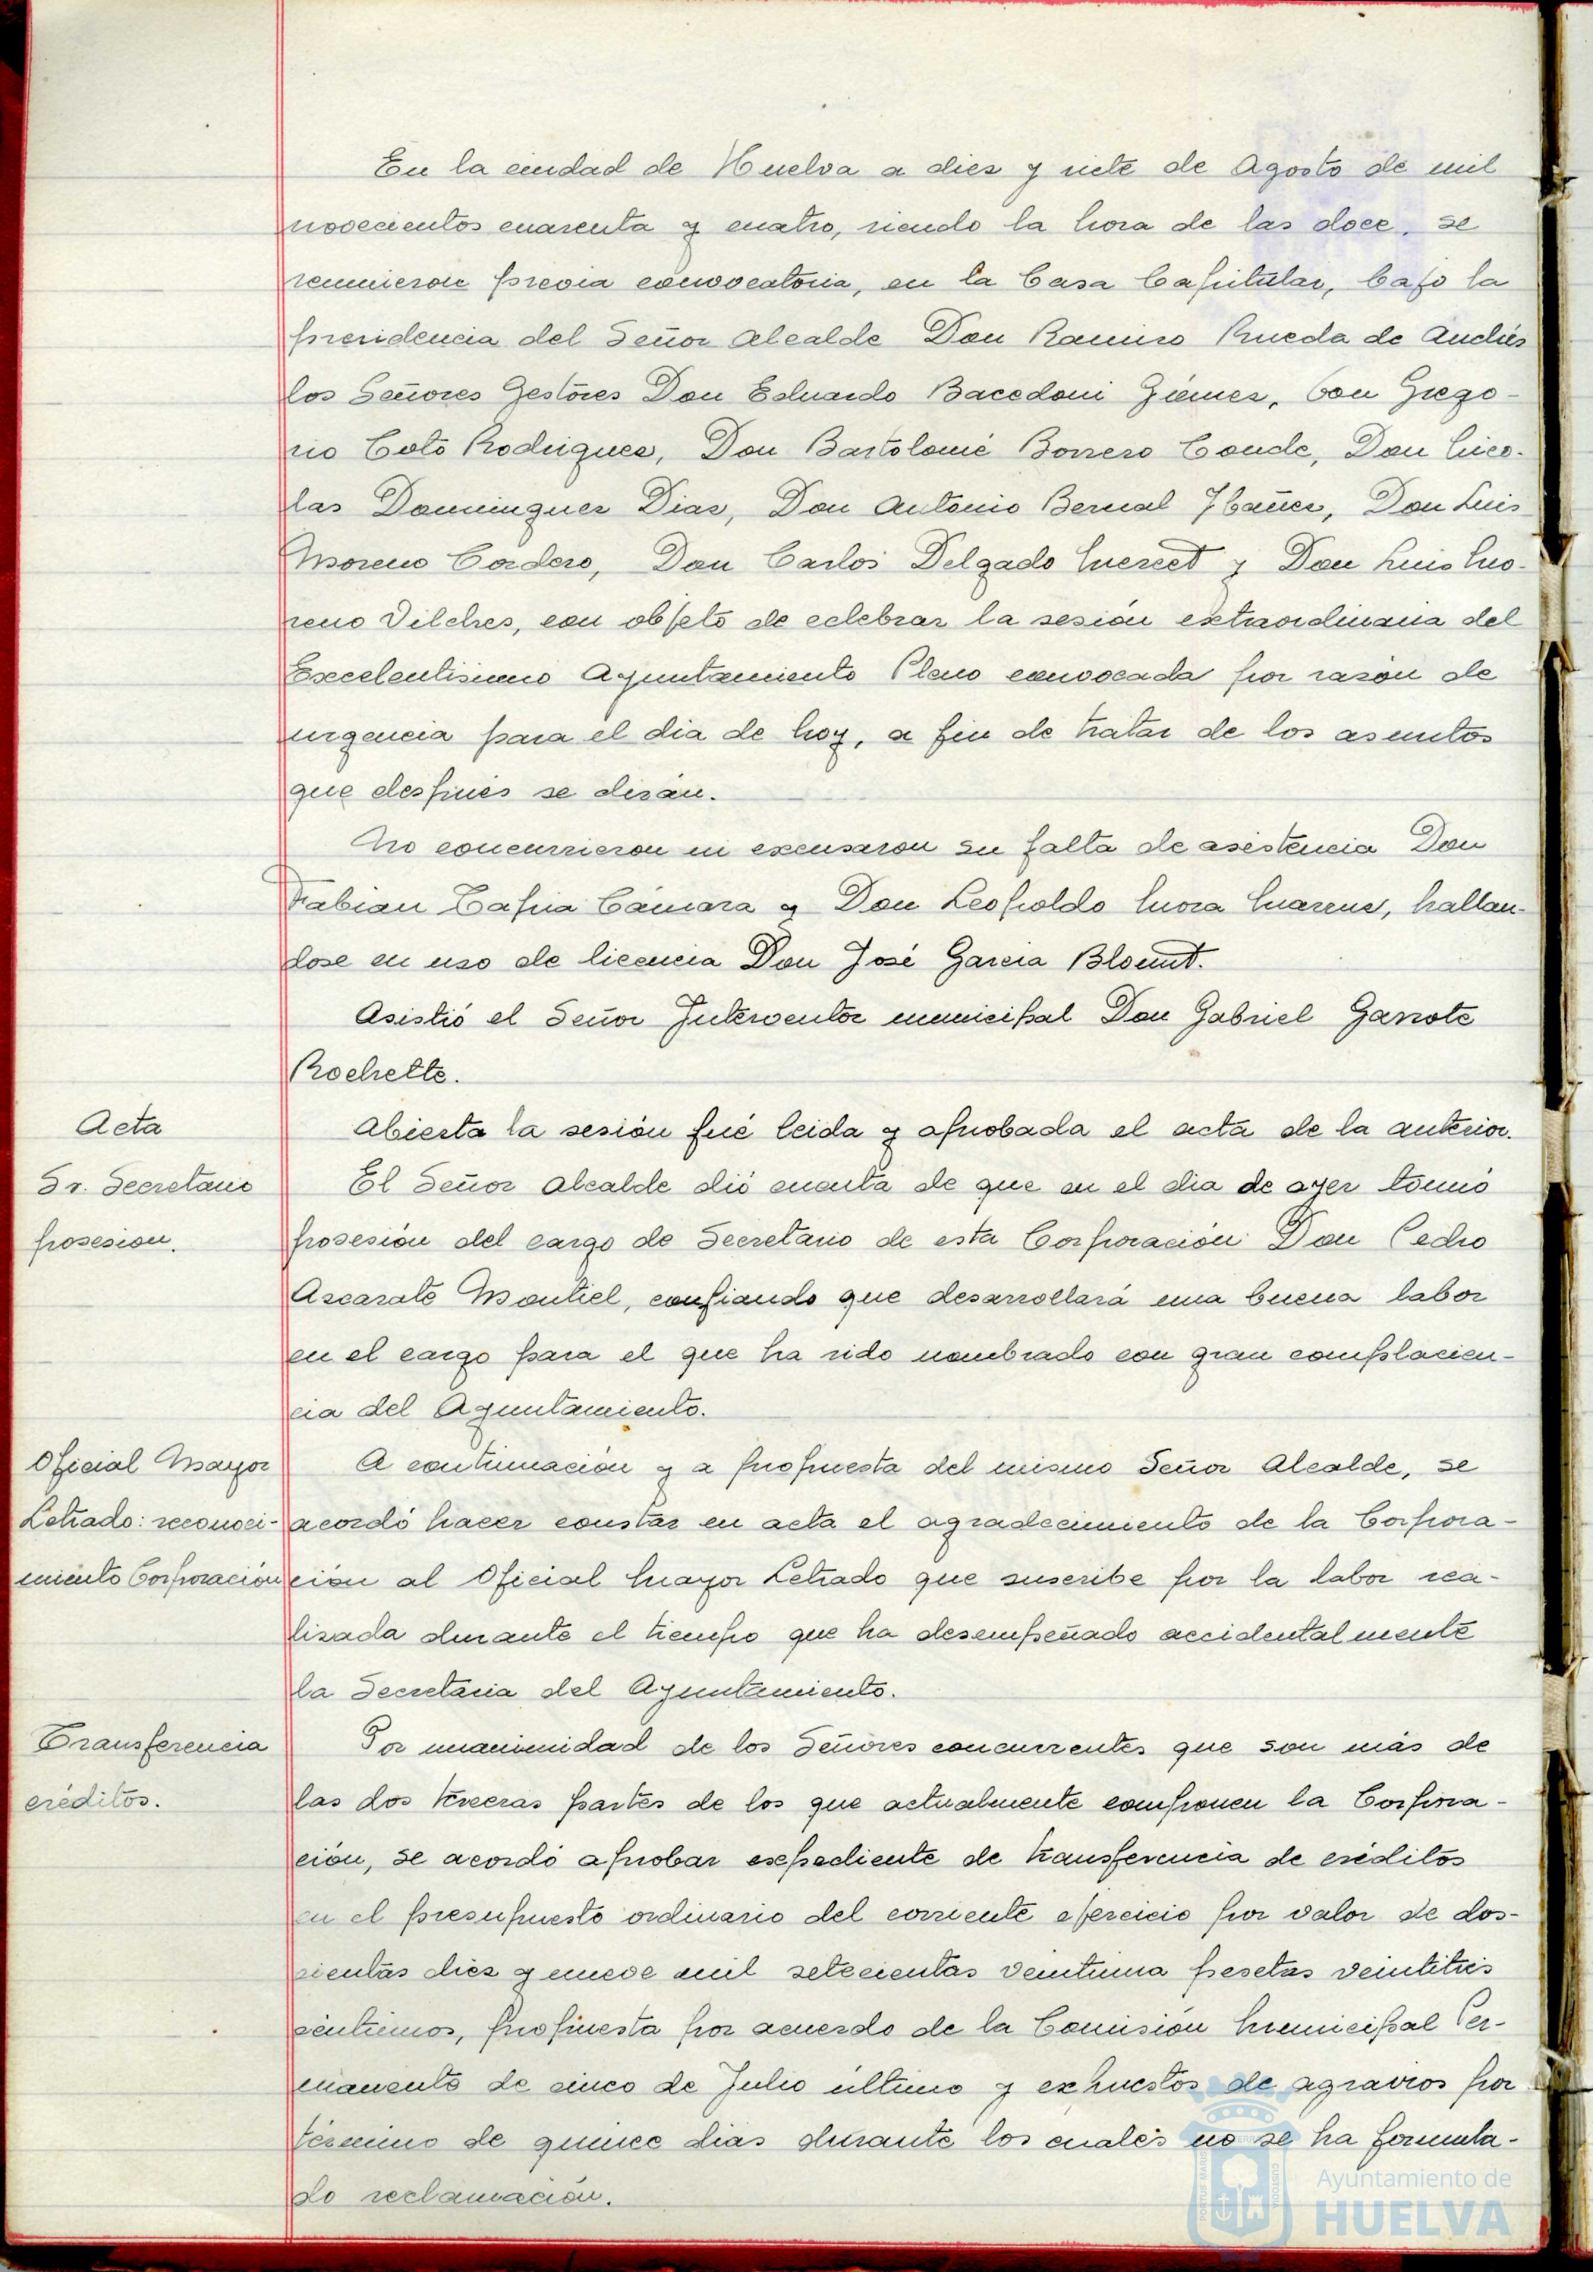 En la ciudad de Huelva a diez y siete de Agosto de mil
novecientos cuarenta y cuatro, siendo la hora de las doce, se
reunieron previa convocatoria, en la Casa Capitular, bajo la
presidencia del Señor Alcalde Don Ramiro Rueda de Andrés
los Señores Gestores Don Eduardo Bacedoni Giémez, Don Grego-
rio Coto Rodriguez, Don Bartolomé Borrero Conde, Don Nico-
las Dominguez Diaz, Don Antonio Bernal Ybañez, Don Luis
Moreno Cordero, Don Carlos Delgado y Don Luis Mo-
reno Vilches, con objeto de celebrar la sesión extraordinaria del
Excelentisimo Ayuntamiento Pleno convocada por razón de
urgencia para el dia de hoy, a fin de tratar de los asuntos
que después se dirán.
No concurrieron ni excusaron su falta de asistencia Don
Fabian Tapia Cámara y Don Leopoldo Mora, hallan-
dose en uso de licencia Don José Garcia Blount.
Asistió el Señor Interventor municipal Don Gabriel Garrote
Rochette.
Acta
Abierta la sesión fué leida y aprobada el acta de la anterior.
Sr. Secretario
posesion.
El Señor Alcalde dió cuenta de que en el dia de ayer tomó
posesión del cargo de Secretario de esta Corporación Don Pedro
Azcarate Montiel, confiando que desarrollará una buena labor
en el cargo para el que ha sido nombrado con gran complacien-
cia del Ayuntamiento.
Oficial Mayor
Letrado: reconoci-
miento Corporación
A continuación y a propuesta del mismo Señor Alcalde, se
acordó hacer constar en acta el agradecimiento de la Corpora-
ción al Oficial Mayor Letrado que suscribe por la labor rea-
lizada durante el tiempo que ha desempeñado accidentalmente
la Secretaria del Ayuntamiento.
Transferencia
créditos.
Por unanimidad de los Señores concurrentes que son más de
las dos terceras partes de los que actualmente componen la Corpora-
ción, se acordó aprobar expediente de transferencia de créditos
en el presupuesto ordinario del corriente ejercicio por valor de dos-
cientas diez y nueve mil setecientas veintiuna pesetas veintitres
céntimos, propuesta por acuerdo de la Comisión Municipal Per-
manente de cinco de Julio último y expuestos de agravios por
término de quince dias durante los cuales no se ha formula-
do reclamación.
Ayuntamiento de
HUELVA